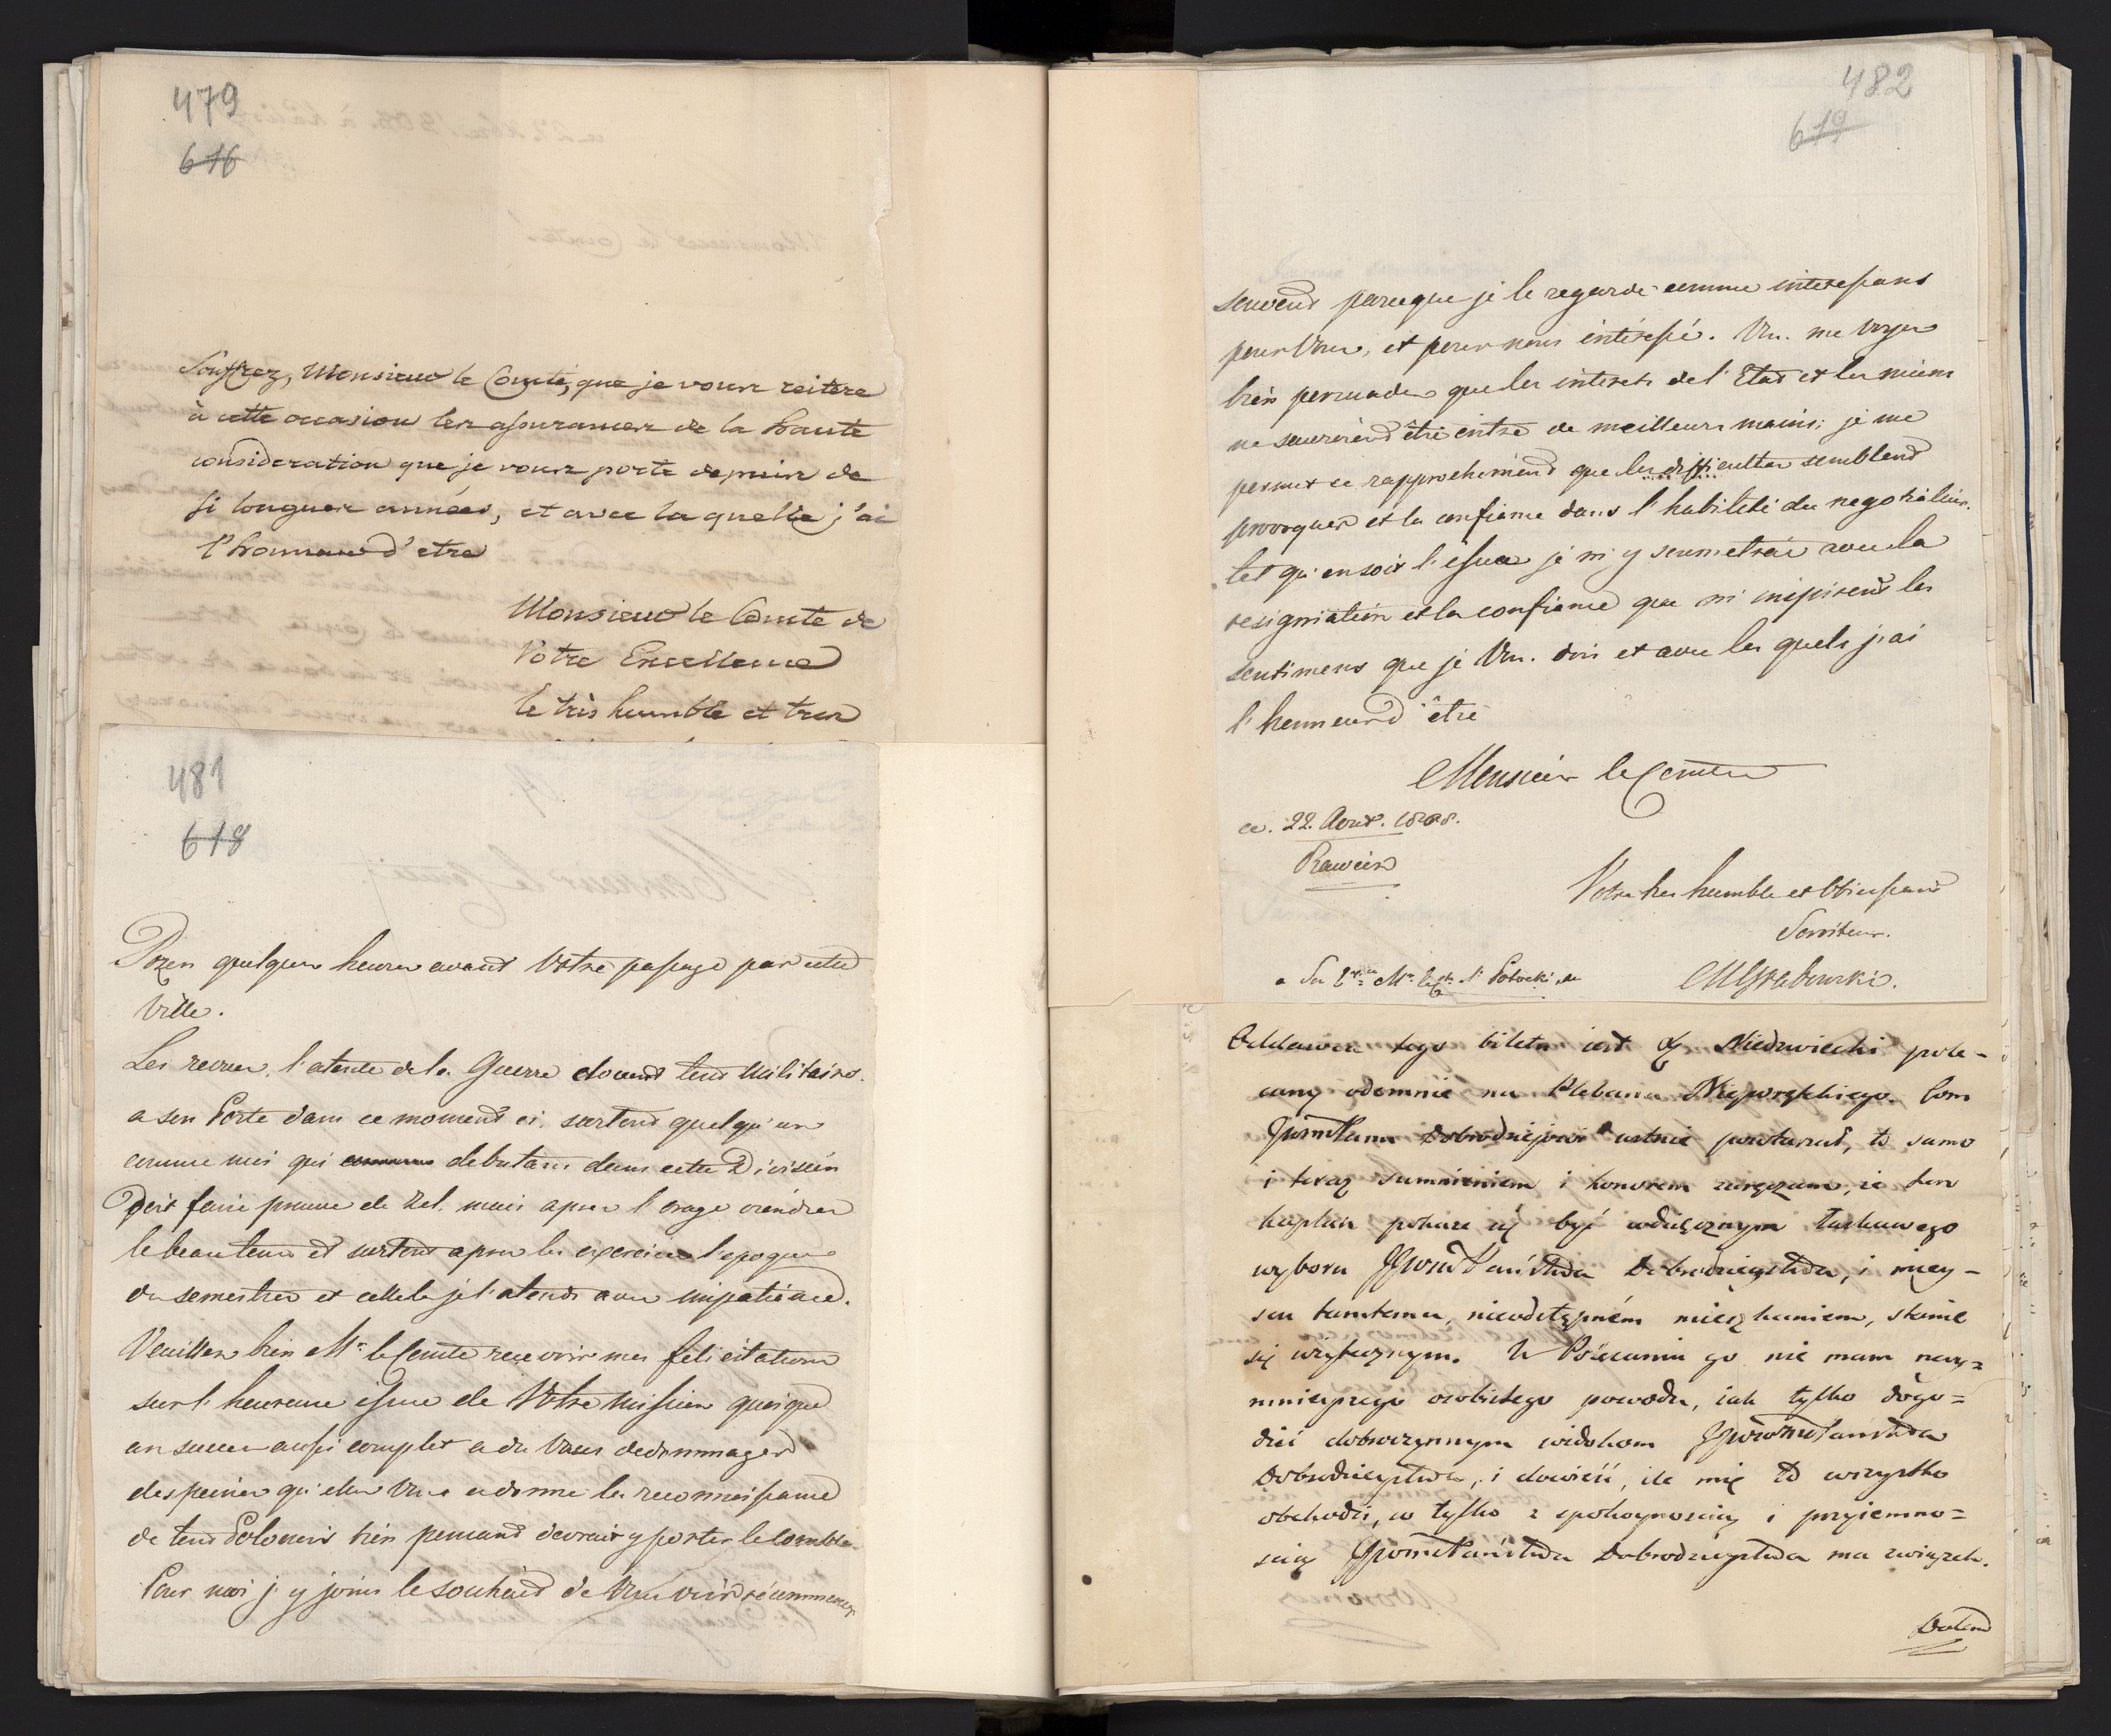 479
616
Souffrez, Monsieur le Comte, que je vous reitere
à cette occasion les assurances de la haute
consideration que je vous porte depuis de
si longues années, et avec la quelle j'ai
l'honneur d'etre
Monsieur le Comte de
Votre Excellence
le très humble et tres
481
618
Posen quelques heures avant Votre passage par cette
Ville.
Les revues, l'atente de la Guerre doivent tout Militaire
a son Poste dans ce moment ci, surtout quelqu'un
comme moi qui debutant dans cette Division
Doit faire preuve de Zel. mais apres l'orage viendra
le beau tems et surtout apres les exercices l'epoque
du semestres et celle la je l'atends avec impatience.
Veuillez bien Mr le Comte recevoir mes felicitations
sur l'heureuse issue de Votre Mission quoique
un succes aussi complet a du Vous dedommager
des peines qu'elle Vous a donné la reconnoissance
de tout Polonois bien pensant devrait y porter le comble
Pour moi j'y joins le souhait de Vous voir
482
619
souvent parceque je le regarde comme interessant
pour Vous, et pour nous intéressé. Vous me voyez
bien persuadé que les interets de l'Etat et les miens
ne sauroient être entre de meilleurs mains; je me
permet ce rapprochement que les difficultes semblent
provoquer et la confiance dans l'habileté du negotiateur.
tel qu'en soit l'issue je m'y soumetrai avec la
resigniation et la confiance que m'inspirent les
sentimens que je Vous dois et avec les quels j'ai
l'honneur d'être
Monsieur le Comte
ce. 22. Aout. 1808.
Rawicz
Votre tres humble et Obeissant
Serviteur.
a Son Ex.ce Mr. le Cte. S. Potocki
MGrabowski.
Oddawca tego biletu iest X Niedzwiecki pole-
cony odemnie na Plebana Nieporętskiego. Com
JWmPanu Dobrodziejowi ustnie powtarzał, to samo
i teraz sumnieniem i honorem zaręczam, że ten
kapłan pokaże się być wdzięcznym łaskawego
wyboru JJWmPaństwa Dobrodzieystwa, i miey-
scu tamtemu, nieodstępném mieszkaniem, stanie
się użytecznym. W Poleceniu go nie mam nay-
mnieyszego osobistego powodu, iak tylko dogo=
dzić dobroczynnym widokom JJWmPaństwa
Dobrodzieystwa, i dowieść, ile mię to wszystko
obchodzi, co tylko z spokoynością i przyiemno=
ścią JJWmPaństwa Dobrodzieystwa ma związek.